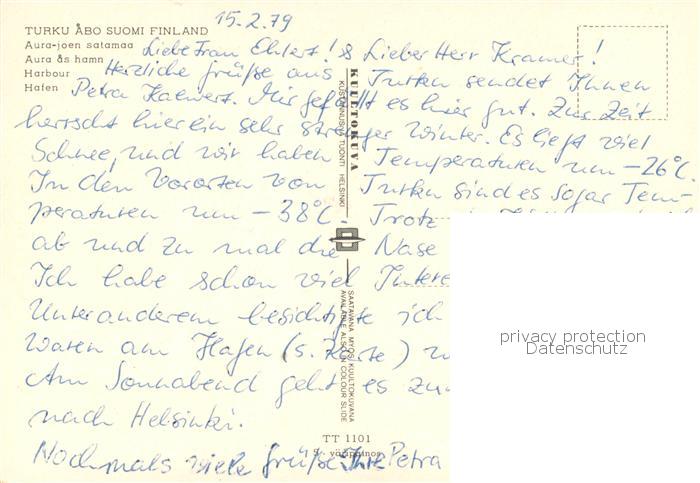 15.2.79
TURKU ÅBO SUOMI FINLAND
Aura-joen satamaa
Aura ås hamn
Harbour
Hafen
Liebe Frau Ehlert! & Lieber Herr Kramer!
Herzliche Grüße aus Turku sendet Ihnen
Petra Mir gefällt es hier gut. Zur Zeit
herrscht hier ein sehr strenger Winter. Es liegt viel
Schnee, und wir haben Temperaturen um -26°C.
In den Vororten von Turku sind es sogar Tem-
peraturen um -38°C. Trotz
ab und zu mal die Nase
Ich habe schon viel Intere
Unteranderem besichtigte ich
waren am Hafen (s. Karte)
Am Sonnabend geht es zu
nach Helsinki.
Nochmals viele Grüße Ihre Petra
KUULTOKUVA
KUSTANNUS JA TUONTI HELSINKI
SAATAVANA MYÖS KUULTOKUVANA
AVAILABLE ALSO IN COLOUR SLIDE
TT 1101
S. väripainos
privacy protection
Datenschutz